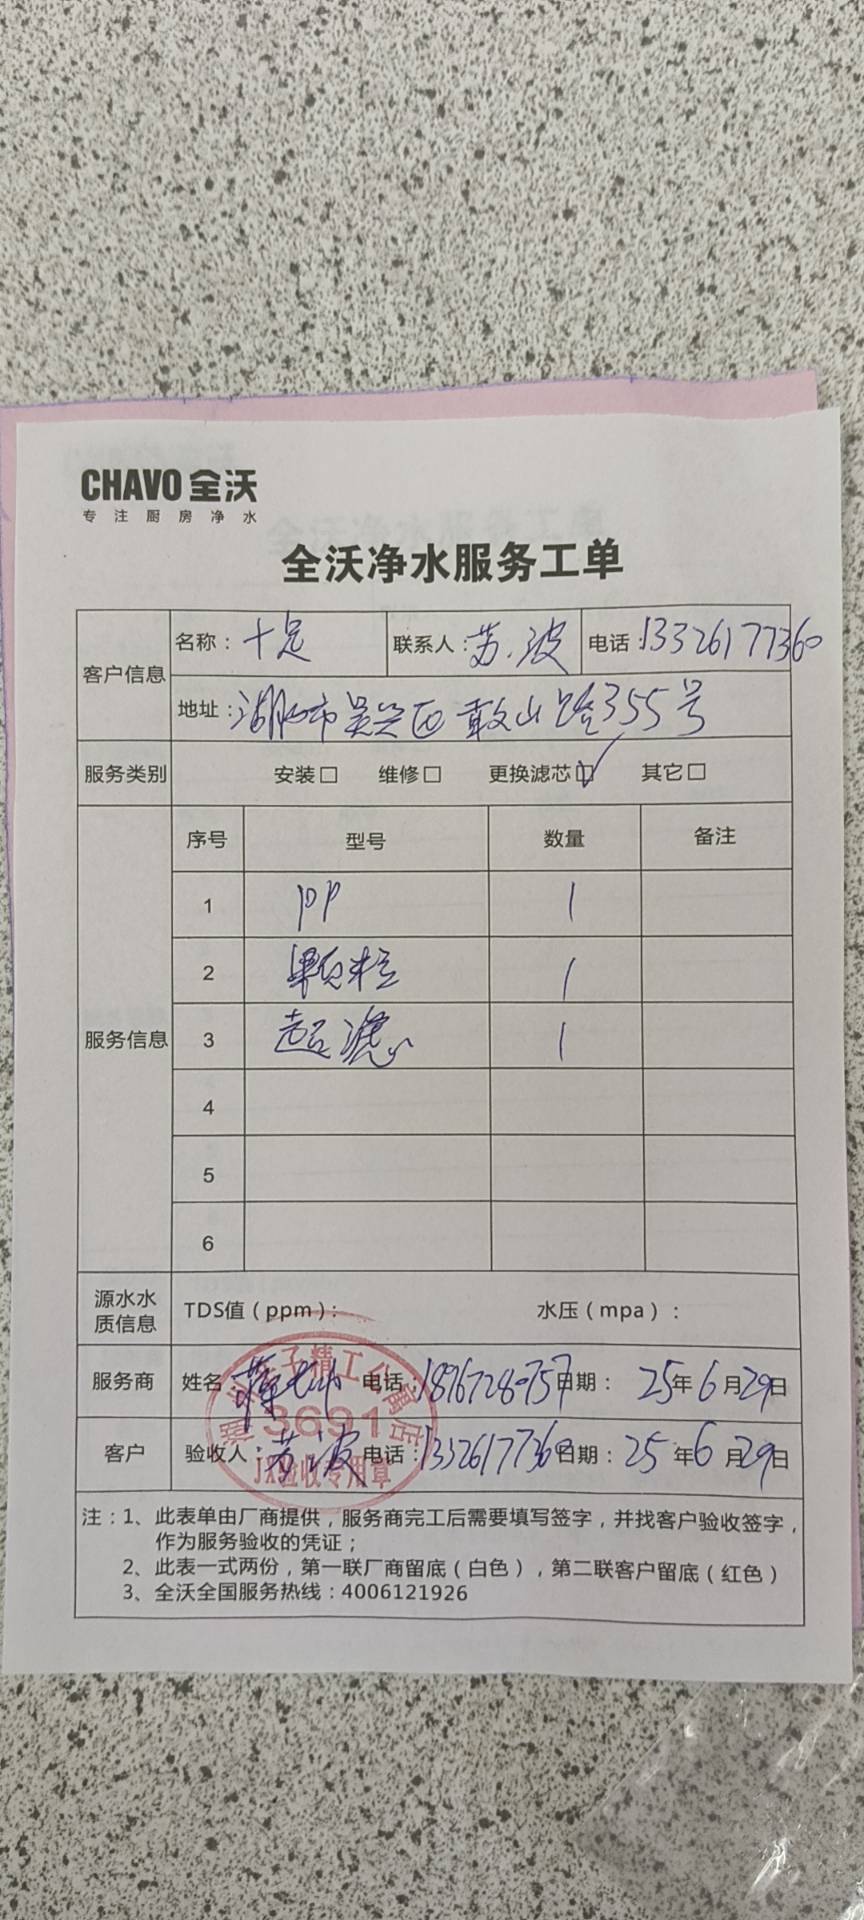 CHAVO 全沃
专注厨房净水
全沃净水服务工单
客户信息 名称：十足 联系人：苏波 电话：13326177360
地址：湖州市吴兴区敢山路355号
服务类别 安装□ 维修□ 更换滤芯☑ 其它□
服务信息 序号 型号 数量 备注
1 PP 1
2 颗粒 1
3 超滤 1
4
5
6
源水水质信息 TDS值（ppm）： 水压（mpa）：
服务商 姓名 电话： 日期：25年6月29日
客户 验收人：苏波 电话：13326177360 日期：25年6月29日
精工公寓店
3691
jx验收专用章
注：1、此表单由厂商提供，服务商完工后需要填写签字，并找客户验收签字，
作为服务验收的凭证；
2、此表一式两份，第一联厂商留底（白色），第二联客户留底（红色）
3、全沃全国服务热线：4006121926